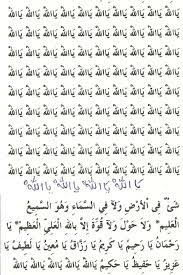 يَااَللهُ يَااَللهُ يَااَللهُ يَااَللهُ يَااَللهُ يَااَللهُ
يَااَللهُ يَااَللهُ يَااَللهُ يَااَللهُ يَااَللهُ يَااَللهُ
يَااَللهُ يَااَللهُ يَااَللهُ يَااَللهُ يَااَللهُ يَااَللهُ
يَااَللهُ يَااَللهُ يَااَللهُ يَااَللهُ يَااَللهُ يَااَللهُ
يَااَللهُ يَااَللهُ يَااَللهُ يَااَللهُ يَااَللهُ يَااَللهُ
يَااَللهُ يَااَللهُ يَااَللهُ يَااَللهُ يَااَللهُ يَااَللهُ
يَااَللهُ يَااَللهُ يَااَللهُ يَااَللهُ يَااَللهُ يَااَللهُ
يَااَللهُ يَااَللهُ يَااَللهُ يَااَللهُ يَااَللهُ يَااَللهُ
يَااَللهُ يَااَللهُ يَااَللهُ يَااَللهُ يَااَللهُ يَااَللهُ
يَااَللهُ يَااَللهُ يَااَللهُ يَااَللهُ يَااَللهُ يَااَللهُ
يَااَللهُ يَااَللهُ يَااَللهُ يَااَللهُ يَااَللهُ يَااَللهُ
يااَللهُ يااَللهُ يااَللهُ يااَللهُ
شَىْءٌ فِى اْلأَرْضِ وَلاَ فِى السَّمَاءِ وَهُوَ السَّمِيعُ
الْعَلِيمُ* وَلاَ حَوْلَ وَلاَ قُوَّةَ إِلاَّ بِاللهِ الْعَلِىِّ الْعَظِيمِ* يَا
رَحْمَانُ يَا رَحِيمُ يَا كَرِيمُ يَا رَزَّاقُ يَا مُعِينُ يَا لَطِيفُ يَا
عَزِيزُ يَا حَفِيظُ يَا حَكِيمُ يَااَللهُ يَااَللهُ يَااَللهُ يَااَللهُ